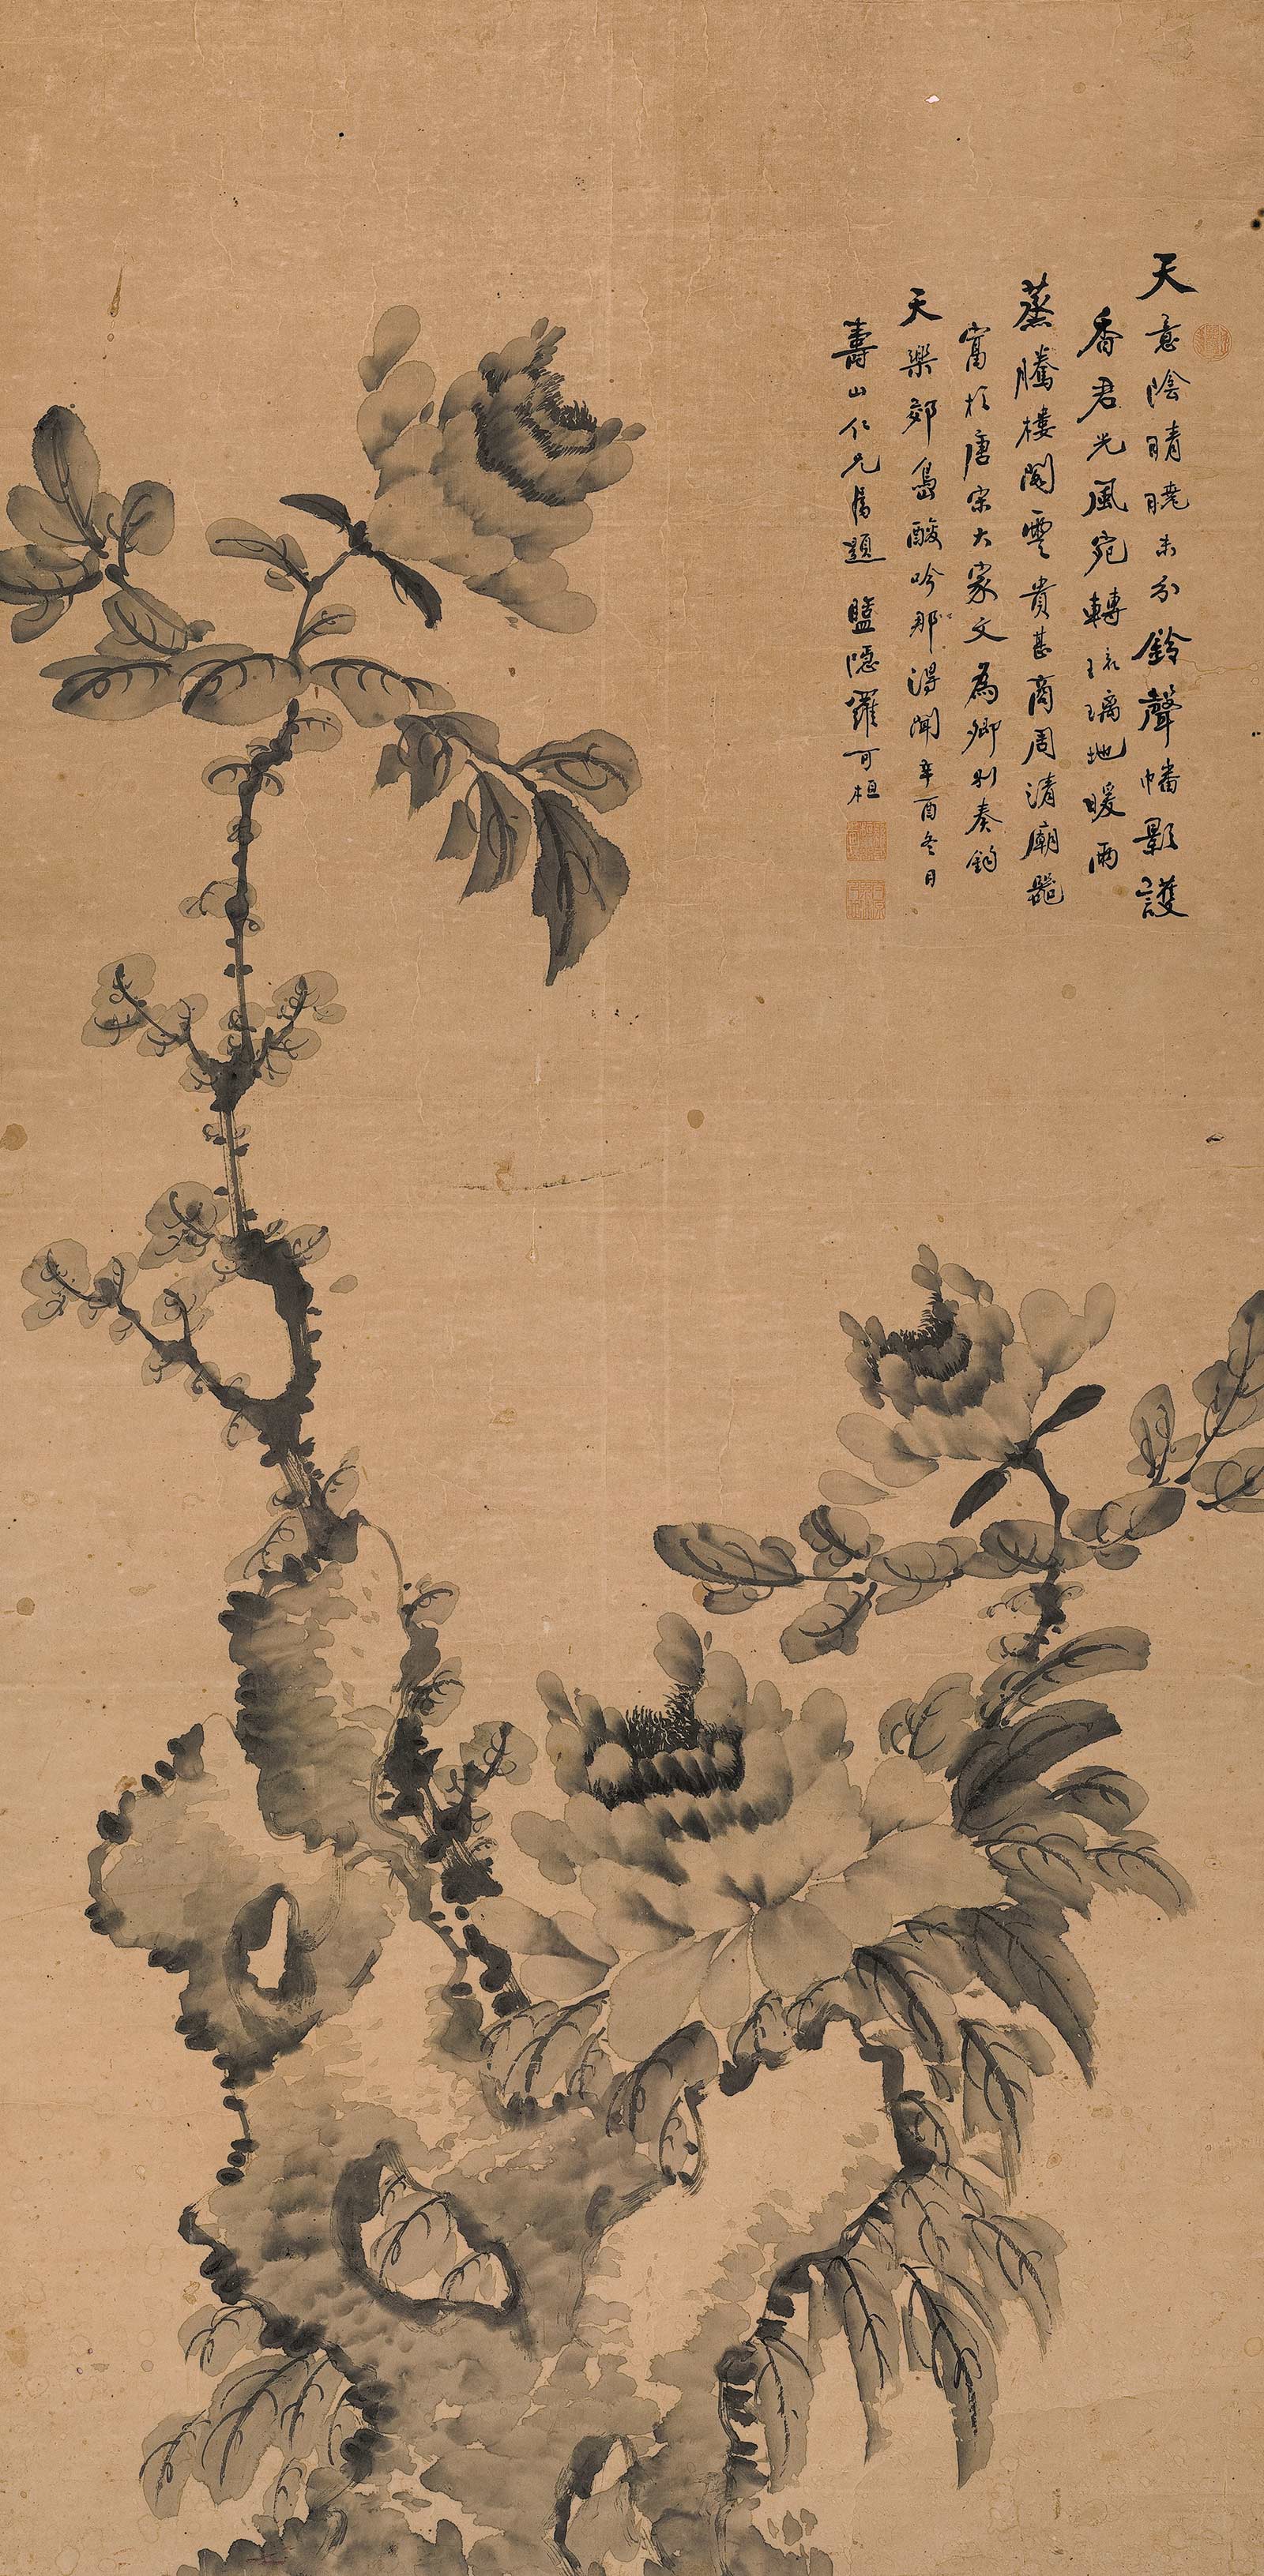 天意陰晴曉未分鈴聲幡影護
香君光風宛轉琉璃地暖雨
蒸騰樓閣雲貴甚商周清廟器
富於唐宋大家文為卿別奏鈞
天樂郊島酸吟那得聞辛酉冬月
壽山仁兄屬題 隱羅可桓